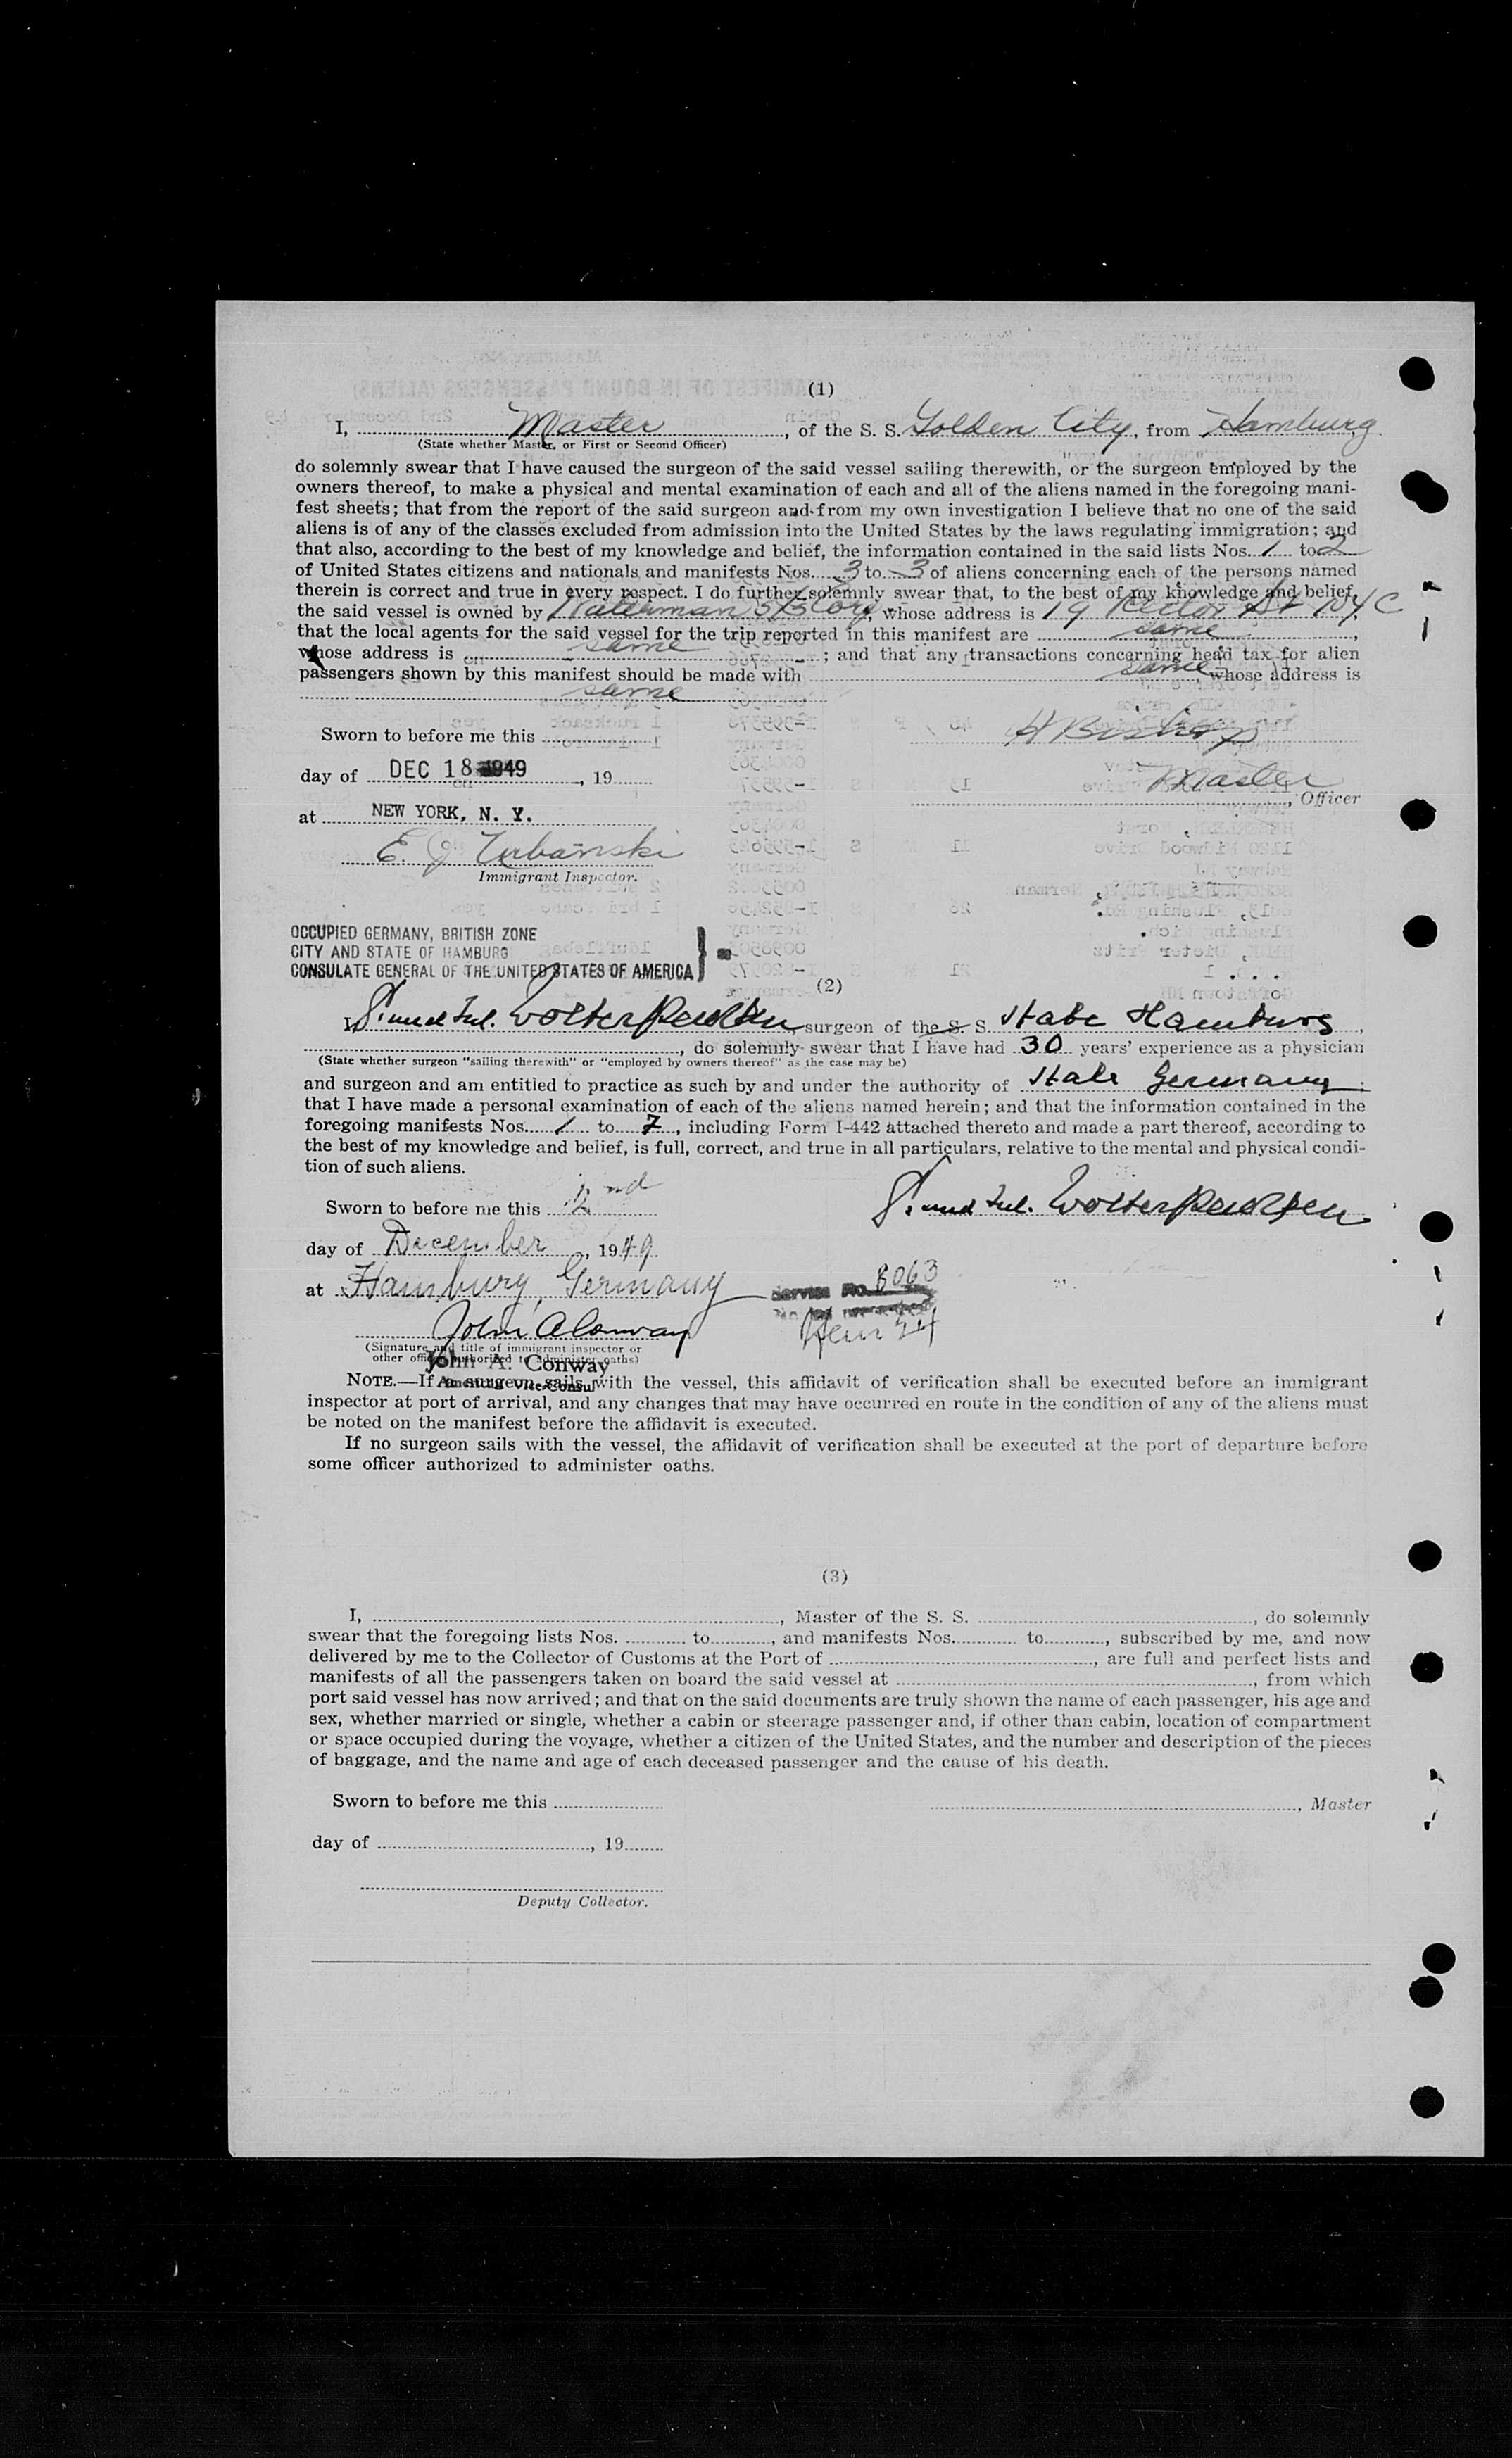 (1)
I, Master, of the S. S. Golden City, from Hamburg
(State whether Master, or First or Second Officer)
do solemnly swear that I have caused the surgeon of the said vessel sailing therewith, or the surgeon employed by the
owners thereof, to make a physical and mental examination of each and all of the aliens named in the foregoing mani-
fest sheets; that from the report of the said surgeon and from my own investigation I believe that no one of the said
aliens is of any of the classes excluded from admission into the United States by the laws regulating immigration; and
that also, according to the best of my knowledge and belief, the information contained in the said lists Nos. 1 to 2
of United States citizens and nationals and manifests Nos. 3 to 3 of aliens concerning each of the persons named
therein is correct and true in every respect. I do further solemnly swear that, to the best of my knowledge and belief,
the said vessel is owned by Waterman S/S Corp, whose address is 19 Rector St NYC
that the local agents for the said vessel for the trip reported in this manifest are same,
whose address is same; and that any transactions concerning head tax for alien
passengers shown by this manifest should be made with same whose address is
same
Sworn to before me this
H Bishop
day of DEC 18 1949, 19
Master, Officer
at NEW YORK, N. Y.
E. J. Urbanski
Immigrant Inspector.
OCCUPIED GERMANY, BRITISH ZONE
CITY AND STATE OF HAMBURG
CONSULATE GENERAL OF THE UNITED STATES OF AMERICA
(2)
I, surgeon of the S. S. State Hamburg,
, do solemnly swear that I have had 30 years' experience as a physician
(State whether surgeon "sailing therewith" or "employed by owners thereof" as the case may be)
and surgeon and am entitled to practice as such by and under the authority of State Germany;
that I have made a personal examination of each of the aliens named herein; and that the information contained in the
foregoing manifests Nos. 1 to 7, including Form I-442 attached thereto and made a part thereof, according to
the best of my knowledge and belief, is full, correct, and true in all particulars, relative to the mental and physical condi-
tion of such aliens.
Sworn to before me this 2nd
day of December, 1949
at Hamburg, Germany
Service No. 8063
John A Conway
(Signature and title of immigrant inspector or
other officer authorized to administer oaths)
John A. Conway
American Vice Consul
NOTE.—If a surgeon sails with the vessel, this affidavit of verification shall be executed before an immigrant
inspector at port of arrival, and any changes that may have occurred en route in the condition of any of the aliens must
be noted on the manifest before the affidavit is executed.
If no surgeon sails with the vessel, the affidavit of verification shall be executed at the port of departure before
some officer authorized to administer oaths.
(3)
I, , Master of the S. S. , do solemnly
swear that the foregoing lists Nos. to , and manifests Nos. to , subscribed by me, and now
delivered by me to the Collector of Customs at the Port of , are full and perfect lists and
manifests of all the passengers taken on board the said vessel at , from which
port said vessel has now arrived; and that on the said documents are truly shown the name of each passenger, his age and
sex, whether married or single, whether a cabin or steerage passenger and, if other than cabin, location of compartment
or space occupied during the voyage, whether a citizen of the United States, and the number and description of the pieces
of baggage, and the name and age of each deceased passenger and the cause of his death.
Sworn to before me this
, Master
day of , 19
Deputy Collector.